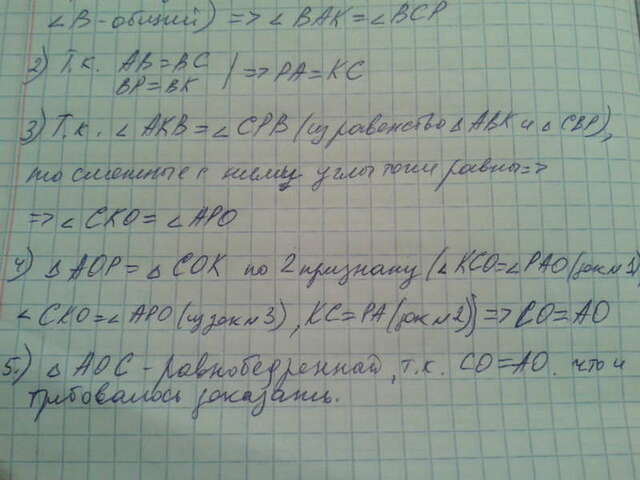 ∠B-общий) => ∠BAK = ∠BCP
2) Т.к. AB = BC
BP = BK | => PA = KC
3) Т.к. ∠AKB = ∠CPB (из равенства ΔABK и ΔCBP),
то смежные с ними углы тоже равны =>
=> ∠CKO = ∠APO
4) ΔAOP = ΔCOK по 2 признаку (∠KCO = ∠PAO (док №1)
∠CKO = ∠APO (из док №3), KC = PA (док №2)) => CO = AO
5.) ΔAOC - равнобедренный, т.к. CO = AO. что и
требовалось доказать.